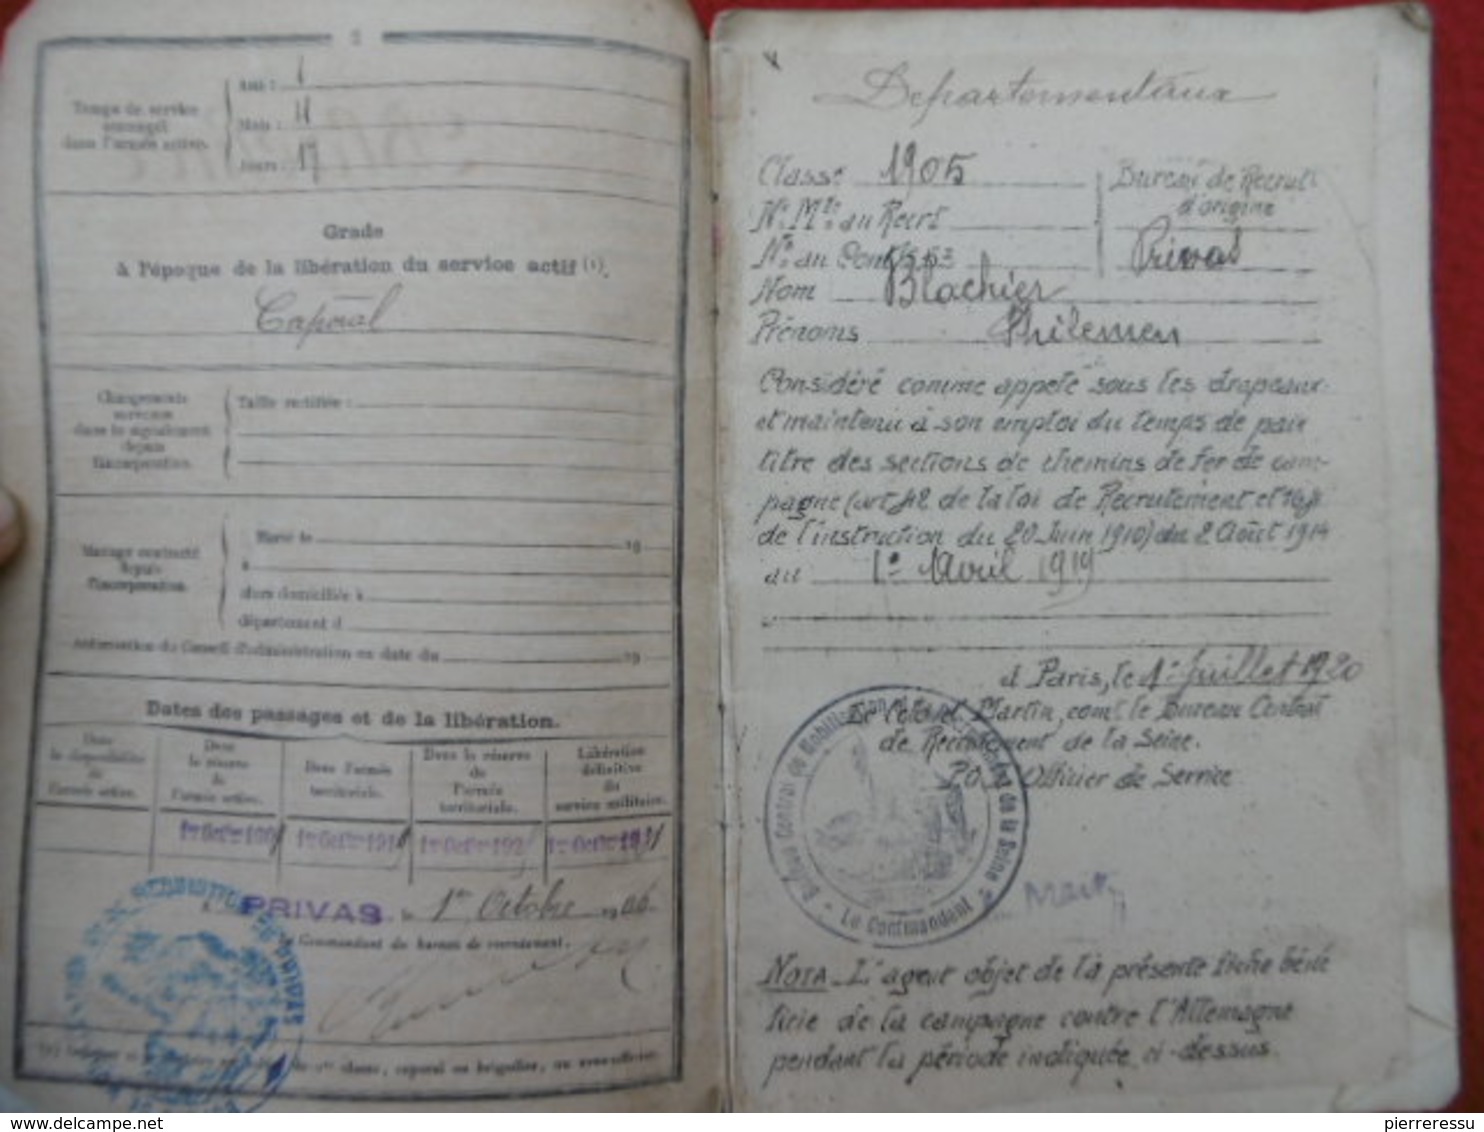 2
Temps de service
accompli
dans l'armée active.
Ans : 1
Mois : 11
Jours : 17
Grade
à l'époque de la libération du service actif (1).
Caporal
Changements
survenus
dans le signalement
depuis
l'incorporation.
Taille rectifiée :
Mariage contracté
depuis
l'incorporation.
Marié le 19
à
alors domicilié à
département d
autorisation du Conseil d'administration en date du 19
Dates des passages et de la libération.
Dans
la disponibilité
de
l'armée active.
Dans
la réserve
de
l'armée active.
Dans l'armée
territoriale.
Dans la réserve
de
l'armée
territoriale.
Libération
définitive
du
service militaire.
A PRIVAS le 1er Octobre 1906
Le Commandant du bureau de recrutement,
caporal ou brigadier, ou sous-officier.
Departementaux
Classe 1905
Bureau de Recrut
d'origine
Nº Mle au Recrt
Nº au Cont
Privas
Nom Blachier
Prénoms Philemon
Considéré comme appelé sous les drapeaux
et maintenu à son emploi du temps de paix
titre des sections de chemins de fer de cam-
pagne (art 42 de la loi de Recrutement et
de l'instruction du 20 Juin 1910) du 2 Août 1914
au 1er Avril 1919
à Paris, le 1er Juillet 1920
Le Colonel Martin, comt le Bureau Central
de Recrutement de la Seine.
P.O. L'Officier de Service
Bureau Central de Mobilisation de la Seine
Le Commandant
NOTA - L'agent objet de la présente fiche béné
ficie de la campagne contre l'Allemagne
pendant la période indiquée ci-dessus.
www.delcampe.net
pierreressu